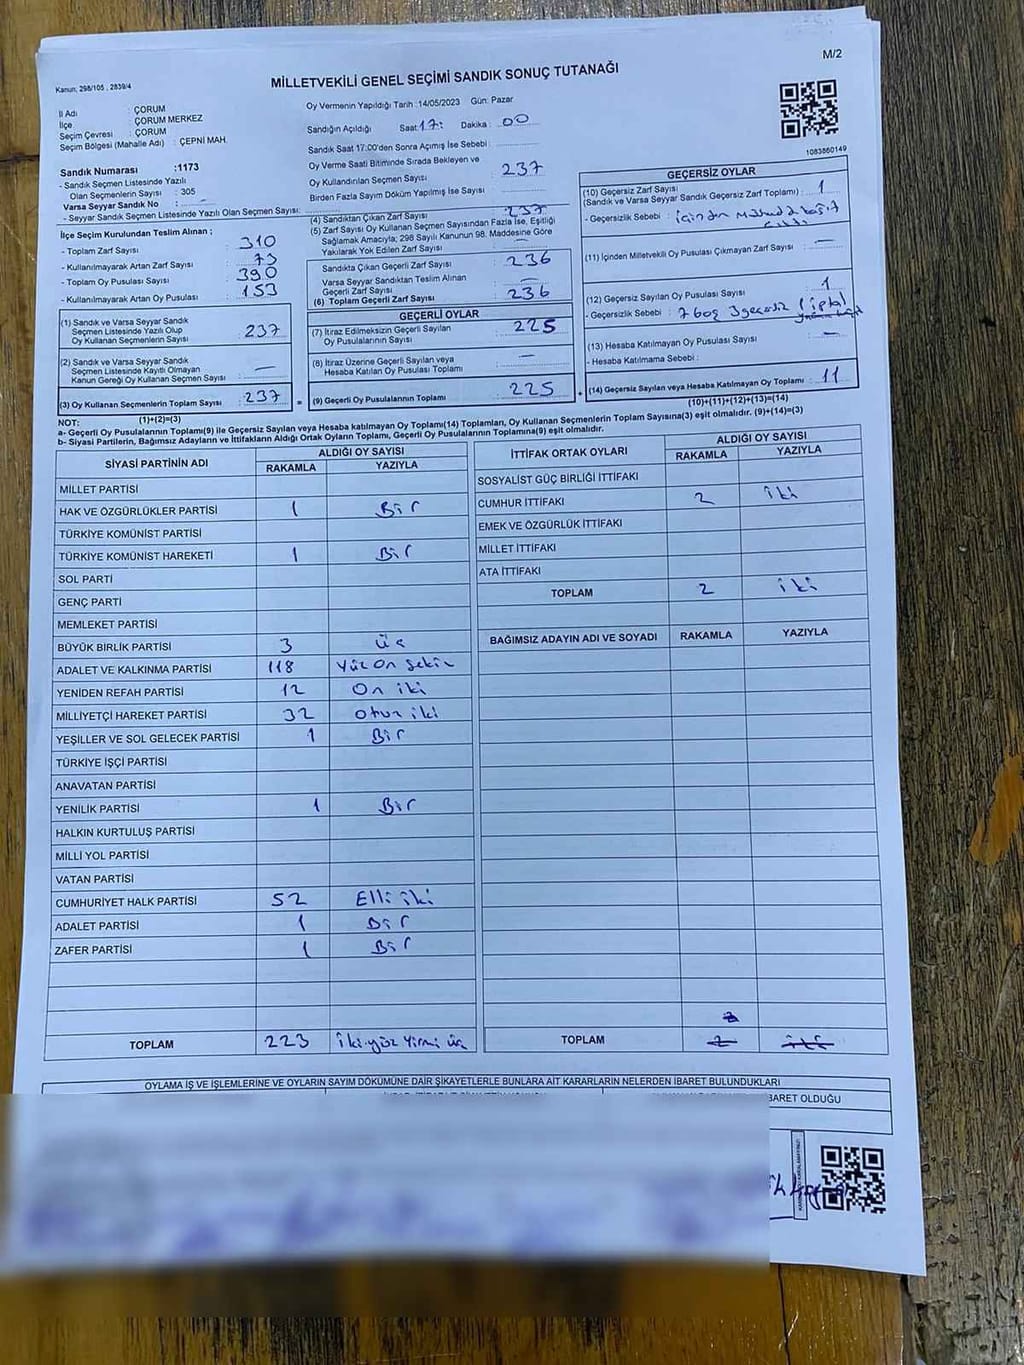 M/2
Kanun: 298/105 , 2839/4
MİLLETVEKİLİ GENEL SEÇİMİ SANDIK SONUÇ TUTANAĞI
İl Adı : ÇORUM
İlçe : ÇORUM MERKEZ
Seçim Çevresi : ÇORUM
Seçim Bölgesi (Mahalle Adı) : ÇEPNİ MAH.
Sandık Numarası :1173
- Sandık Seçmen Listesinde Yazılı
Olan Seçmenlerin Sayısı : 305
Varsa Seyyar Sandık No : -
- Seyyar Sandık Seçmen Listesinde Yazılı Olan Seçmen Sayısı:
Oy Vermenin Yapıldığı Tarih :14/05/2023 Gün: Pazar
Sandığın Açıldığı Saat: 17: Dakika : 00
Sandık Saat 17:00'den Sonra Açımış İse Sebebi :
Oy Verme Saati Bitiminde Sırada Bekleyen ve
Oy Kullandırılan Seçmen Sayısı : 237
Birden Fazla Sayım Döküm Yapılmış İse Sayısı :
1083860149
İlçe Seçim Kurulundan Teslim Alınan ;
- Toplam Zarf Sayısı : 310
- Kullanılmayarak Artan Zarf Sayısı : 73
- Toplam Oy Pusulası Sayısı : 390
- Kullanılmayarak Artan Oy Pusulası : 153
(1) Sandık ve Varsa Seyyar Sandık
Seçmen Listesinde Yazılı Olup
Oy Kullanan Seçmenlerin Sayısı : 237
(2) Sandık ve Varsa Seyyar Sandık
Seçmen Listesinde Kayıtlı Olmayan
Kanun Gereği Oy Kullanan Seçmen Sayısı : —
(3) Oy Kullanan Seçmenlerin Toplam Sayısı : 237
(1)+(2)=(3)
(4) Sandıktan Çıkan Zarf Sayısı : 237
(5) Zarf Sayısı Oy Kullanan Seçmen Sayısından Fazla İse, Eşitliği
Sağlamak Amacıyla; 298 Sayılı Kanunun 98. Maddesine Göre
Yakılarak Yok Edilen Zarf Sayısı : —
Sandıkta Çıkan Geçerli Zarf Sayısı : 236
Varsa Seyyar Sandıktan Teslim Alınan
Geçerli Zarf Sayısı : —
(6) Toplam Geçerli Zarf Sayısı : 236
GEÇERLİ OYLAR
(7) İtiraz Edilmeksizin Geçerli Sayılan
Oy Pusulalarının Sayısı : 225
(8) İtiraz Üzerine Geçerli Sayılan veya
Hesaba Katılan Oy Pusulası Toplamı : —
(9) Geçerli Oy Pusulalarının Toplamı : 225
GEÇERSİZ OYLAR
(10) Geçersiz Zarf Sayısı
(Sandık ve Varsa Seyyar Sandık Geçersiz Zarf Toplamı) : 1
- Geçersizlik Sebebi : İçinden
(11) İçinden Milletvekili Oy Pusulası Çıkmayan Zarf Sayısı : —
(12) Geçersiz Sayılan Oy Pusulası Sayısı : 1
- Geçersizlik Sebebi : 7 boş 3 geçersiz 1 iptal
(13) Hesaba Katılmayan Oy Pusulası Sayısı : —
- Hesaba Katılmama Sebebi :
(14) Geçersiz Sayılan veya Hesaba Katılmayan Oy Toplamı : 11
(10)+(11)+(12)+(13)=(14)
NOT:
a- Geçerli Oy Pusulalarının Toplamı(9) ile Geçersiz Sayılan veya Hesaba katılmayan Oy Toplamı(14) Toplamları, Oy Kullanan Seçmenlerin Toplam Sayısına(3) eşit olmalıdır. (9)+(14)=(3)
b- Siyasi Partilerin, Bağımsız Adayların ve İttifakların Aldığı Ortak Oyların Toplamı, Geçerli Oy Pusulalarının Toplamına(9) eşit olmalıdır.
SİYASİ PARTİNİN ADI ALDIĞI OY SAYISI
RAKAMLA YAZIYLA
MİLLET PARTİSİ
HAK VE ÖZGÜRLÜKLER PARTİSİ 1 Bir
TÜRKİYE KOMÜNİST PARTİSİ
TÜRKİYE KOMÜNİST HAREKETİ 1 Bir
SOL PARTİ
GENÇ PARTİ
MEMLEKET PARTİSİ
BÜYÜK BİRLİK PARTİSİ 3 Üç
ADALET VE KALKINMA PARTİSİ 118 Yüz On Sekiz
YENİDEN REFAH PARTİSİ 12 On iki
MİLLİYETÇİ HAREKET PARTİSİ 32 Otuz iki
YEŞİLLER VE SOL GELECEK PARTİSİ 1 Bir
TÜRKİYE İŞÇİ PARTİSİ
ANAVATAN PARTİSİ
YENİLİK PARTİSİ 1 Bir
HALKIN KURTULUŞ PARTİSİ
MİLLİ YOL PARTİSİ
VATAN PARTİSİ
CUMHURİYET HALK PARTİSİ 52 Elli iki
ADALET PARTİSİ 1 Bir
ZAFER PARTİSİ 1 Bir
TOPLAM 223 iki yüz Yirmi üç
İTTİFAK ORTAK OYLARI ALDIĞI OY SAYISI
RAKAMLA YAZIYLA
SOSYALİST GÜÇ BİRLİĞİ İTTİFAKI
CUMHUR İTTİFAKI 2 iki
EMEK VE ÖZGÜRLÜK İTTİFAKI
MİLLET İTTİFAKI
ATA İTTİFAKI
TOPLAM 2 iki
BAĞIMSIZ ADAYIN ADI VE SOYADI RAKAMLA YAZIYLA
2
TOPLAM 2 iki
OYLAMA İŞ VE İŞLEMLERİNE VE OYLARIN SAYIM DÖKÜMÜNE DAİR ŞİKAYETLERLE BUNLARA AİT KARARLARIN NELERDEN İBARET BULUNDUKLARI
BARET OLDUĞU